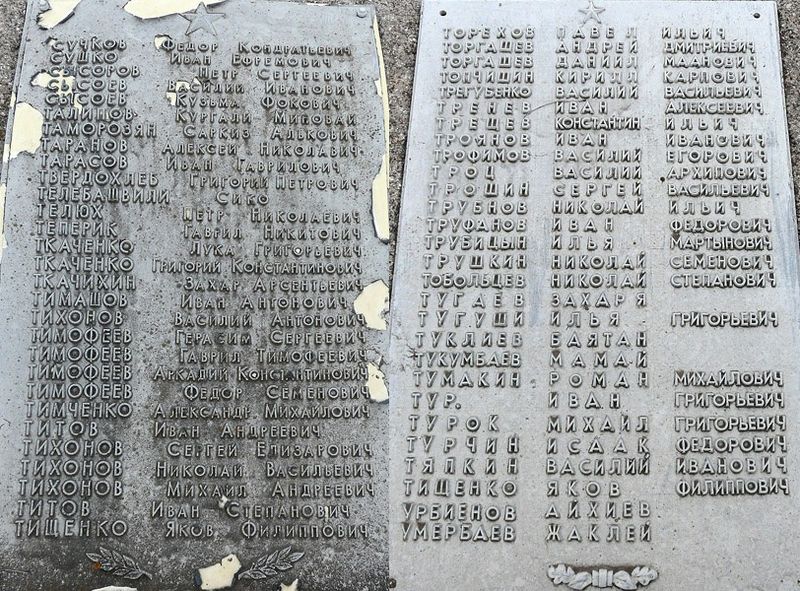 СУЧКОВ ФЕДОР КОНДРАТЬЕВИЧ
СУШКО ИВАН ЕФРЕМОВИЧ
СЫСОРОВ ПЕТР СЕРГЕЕВИЧ
СЫСОЕВ ВАСИЛИЙ ИВАНОВИЧ
СЫСОЕВ КУЗЬМА ФОКОВИЧ
ТАЛИПОВ КУРГАЛИ МИНОВАЙ
ТАМОРОЗЯН САРКИЗ АЛЬКОВИЧ
ТАРАНОВ АЛЕКСЕЙ НИКОЛАВИЧ
ТАРАСОВ ИВАН ГАВРИЛОВИЧ
ТВЕРДОХЛЕБ ГРИГОРИЙ ПЕТРОВИЧ
ТЕЛЕБАШВИЛИ СИКО
ТЕЛЮХ ПЕТР НИКОЛАЕВИЧ
ТЕПЕРИК ГАВРИЛ НИКИТОВИЧ
ТКАЧЕНКО ЛУКА ГРИГОРЬЕВИЧ
ТКАЧЕНКО ГРИГОРИЙ КОНСТАНТИНОВИЧ
ТКАЧИХИН ЗАХАР АРСЕНТЬЕВИЧ
ТИМАШОВ ИВАН АНТОНОВИЧ
ТИХОНОВ ВАСИЛИЙ АНТОНОВИЧ
ТИМОФЕЕВ ГЕРАЗИМ СЕРГЕЕВИЧ
ТИМОФЕЕВ ГАВРИЛ ТИМОФЕЕВИЧ
ТИМОФЕЕВ АРКАДИЙ КОНСТАНТИНОВИЧ
ТИМОФЕЕВ ФЕДОР СЕМЕНОВИЧ
ТИМЧЕНКО АЛЕКСАНДР МИХАЙЛОВИЧ
ТИТОВ ИВАН АНДРЕЕВИЧ
ТИХОНОВ СЕРГЕЙ ЕЛИЗАРОВИЧ
ТИХОНОВ НИКОЛАЙ ВАСИЛЬЕВИЧ
ТИХОНОВ МИХАИЛ АНДРЕЕВИЧ
ТИТОВ ИВАН СТЕПАНОВИЧ
ТИЩЕНКО ЯКОВ ФИЛИППОВИЧ
ТОРЕХОВ ПАВЕЛ ИЛЬИЧ
ТОРГАШЕВ АНДРЕЙ ДМИТРИЕВИЧ
ТОРГАШЕВ ДАНИИЛ МААНОВИЧ
ТОПЧИЩИН КИРИЛЛ КАРПОВИЧ
ТРЕГУБЕНКО ВАСИЛИЙ ВАСИЛЬЕВИЧ
ТРЕНЕВ ИВАН АЛЕКСЕЕВИЧ
ТРЕЩЕВ КОНСТАНТИН ИЛЬИЧ
ТРОЯНОВ ИВАН ИВАНОВИЧ
ТРОФИМОВ ВАСИЛИЙ ЕГОРОВИЧ
ТРОЦ ВАСИЛИЙ АРХИПОВИЧ
ТРОШИН СЕРГЕЙ ВАСИЛЬЕВИЧ
ТРУБНОВ НИКОЛАЙ ИЛЬИЧ
ТРУФАНОВ ИВАН ФЕДОРОВИЧ
ТРУБИЦЫН ИЛЬЯ МАРТЫНОВИЧ
ТРУШКИН НИКОЛАЙ СЕМЕНОВИЧ
ТОБОЛЬЦЕВ НИКОЛАЙ СТЕПАНОВИЧ
ТУГАЕВ ЗАХАРЯ
ТУГУШИ ИЛЬЯ ГРИГОРЬЕВИЧ
ТУКЛИЕВ БАЯТАН
ТУКУМБАЕВ МАМАЙ
ТУМАКИН РОМАН МИХАЙЛОВИЧ
ТУР. ИВАН ГРИГОРЬЕВИЧ
ТУРОК МИХАИЛ ГРИГОРЬЕВИЧ
ТУРЧИН ИСААК ФЕДОРОВИЧ
ТЯПКИН ВАСИЛИЙ ИВАНОВИЧ
ТИЩЕНКО ЯКОВ ФИЛИППОВИЧ
УРБИЕНОВ АЙХИЕВ
УМЕРБАЕВ ЖАКЛЕЙ